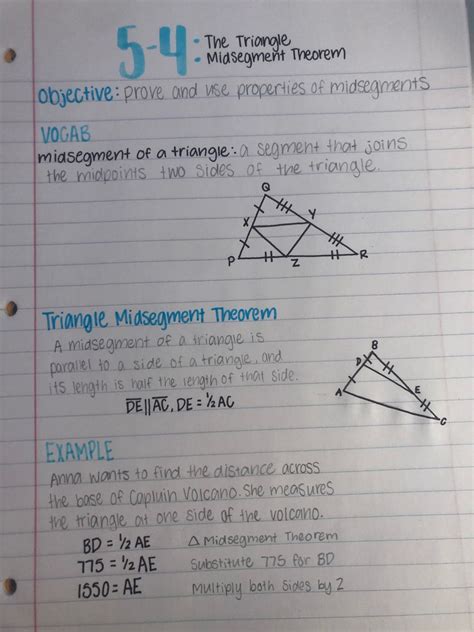 5-4: The Triangle
: Midsegment Theorem
Objective: prove and use properties of midsegments
VOCAB
midsegment of a triangle: a segment that joins
the midpoints two sides of the triangle.
Q
X
Y
P
Z
R
Triangle Midsegment Theorem
A midsegment of a triangle is
parallel to a side of a triangle, and
its length is half the length of that side.
DE||AC, DE = 1/2 AC
B
D
A
E
C
EXAMPLE
Anna wants to find the distance across
the base of Capluin Volcano. She measures
the triangle at one side of the volcano.
BD = 1/2 AE △ Midsegment Theorem
775 = 1/2 AE Substitute 775 for BD
1550 = AE Multiply both sides by 2